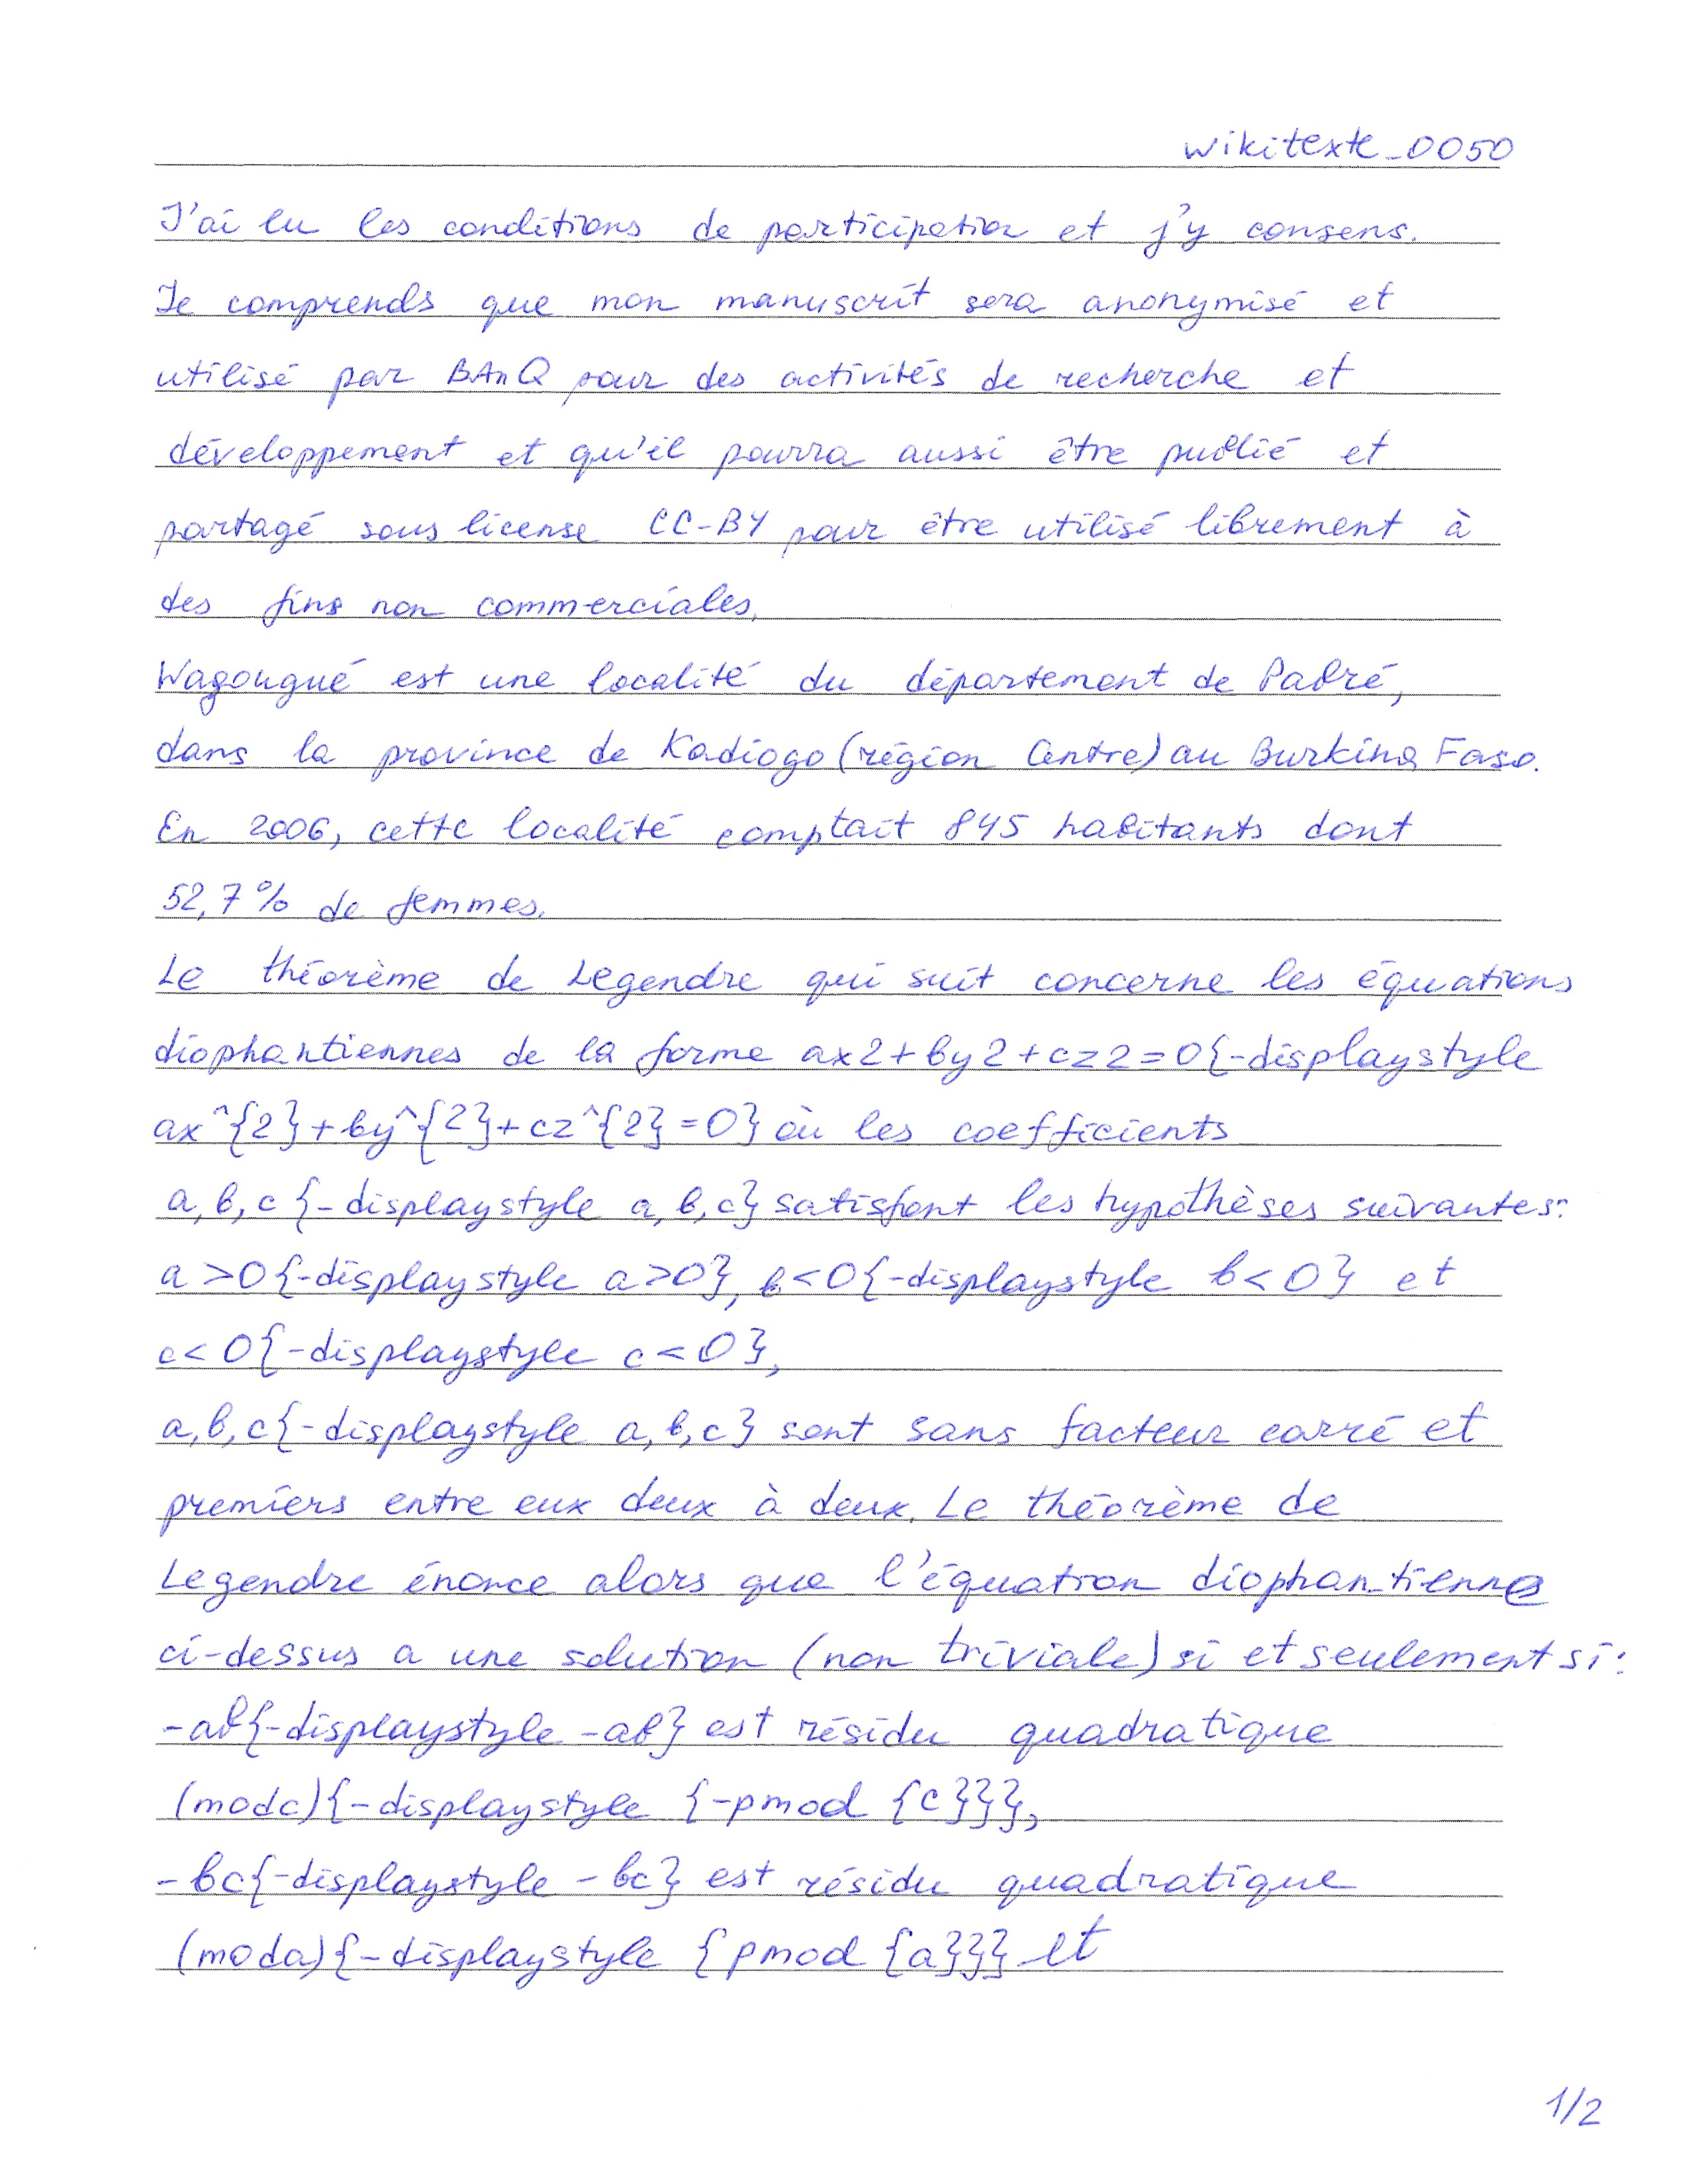 wikitexte_0050
J'ai lu les conditions de participation et j'y consens.
Je comprends que mon manuscrit sera anonymisé et
utilisé par BAnQ pour des activités de recherche et
développement et qu'il pourra aussi être publié et
partagé sous license CC-BY pour être utilisé librement à
des fins non commerciales.
Wagougué est une localité du département de Pabré,
dans la province de Kadiogo (région Centre) au Burkina Faso.
En 2006, cette localité comptait 845 habitants dont
52,7% de femmes.
Le théorème de Legendre qui suit concerne les équations
diophantiennes de la forme ax2+by2+cz2=0{-displaystyle
ax^{2}+by^{2}+cz^{2}=0} où les coefficients
a,b,c{-displaystyle a,b,c} satisfont les hypothèses suivantes:
a>0{-displaystyle a>0}, b<0{-displaystyle b<0} et
c<0{-displaystyle c<0},
a,b,c{-displaystyle a,b,c} sont sans facteur carré et
premiers entre eux deux à deux. Le théorème de
Legendre énonce alors que l'équation diophantienne
ci-dessus a une solution (non triviale) si et seulement si:
-ab{-displaystyle -ab} est résidu quadratique
(modc){-displaystyle {-pmod {c}}},
-bc{-displaystyle -bc} est résidu quadratique
(moda){-displaystyle {pmod {a}}} et
1/2